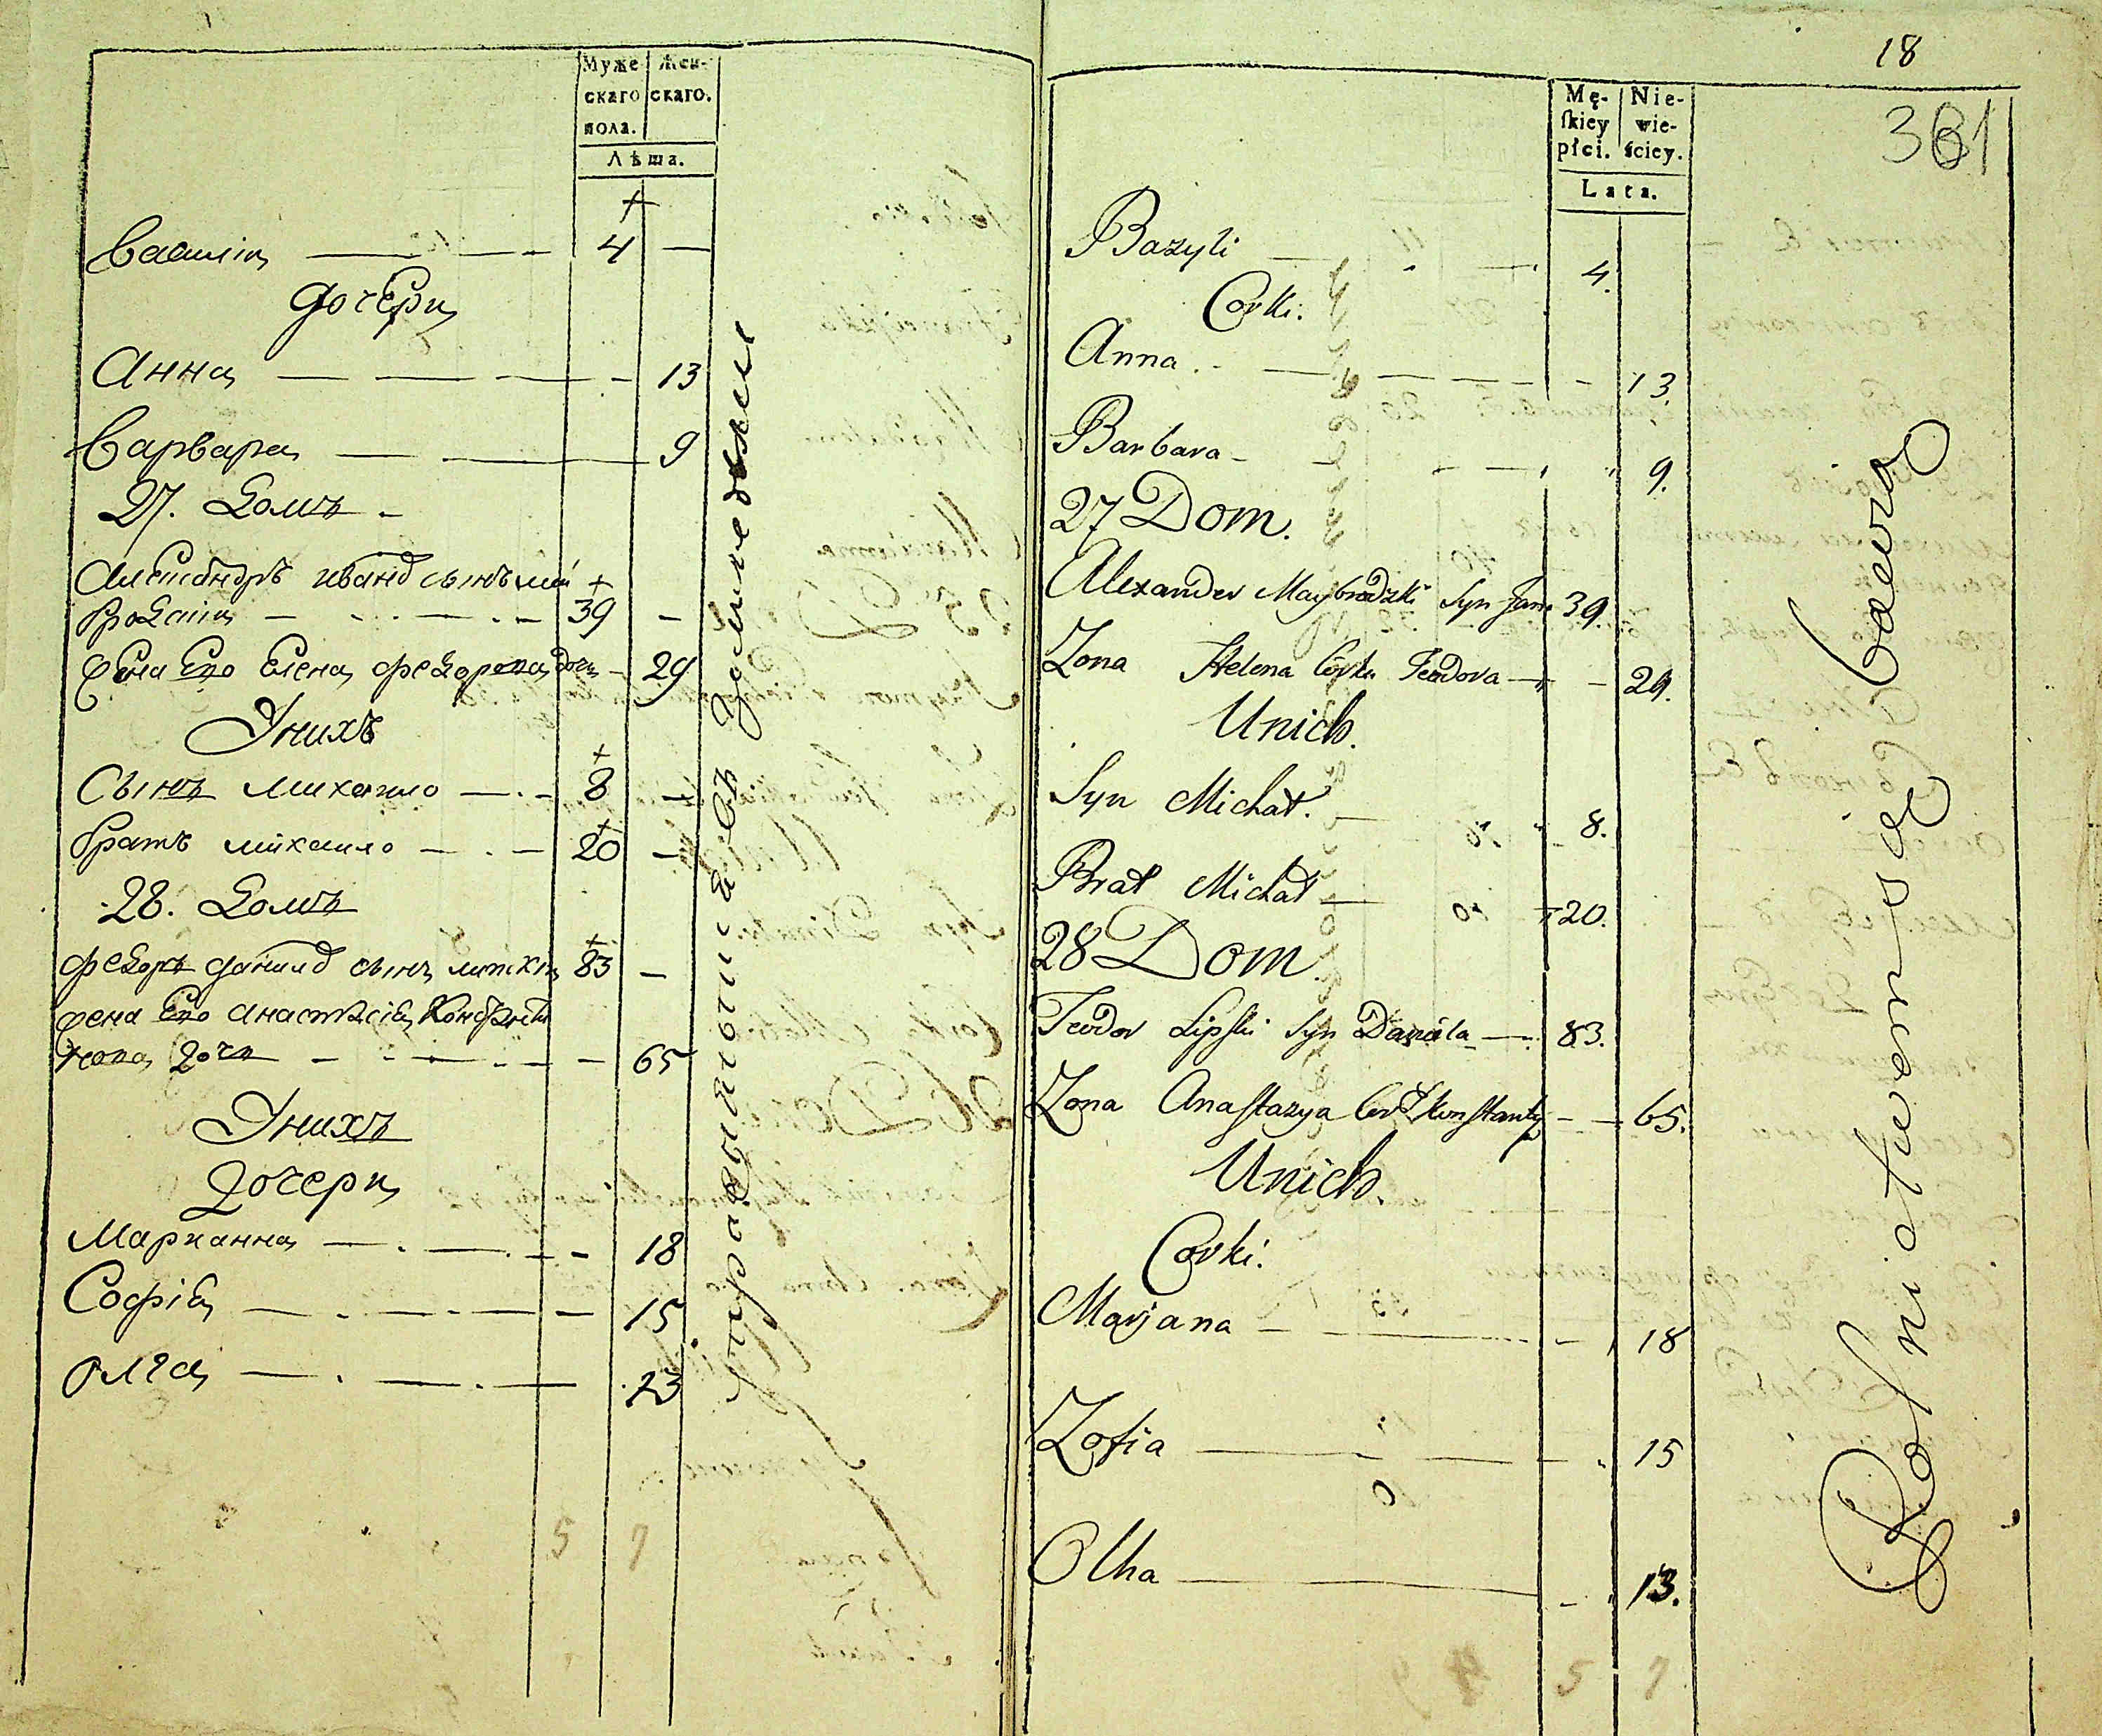 Муже
скаго
пола.
Жен-
скаго.
Лѣта.
+
Василий — 4 —
дочери
Анна — 13
Варвара — 9
27. Домъ
Александръ иванов сынъ май
бродзки — + 39 —
жена Его Елена федорова дочь — 29
У нихъ
Сынъ михайло — + 8 —
братъ михайло — + 20 —
28. Домъ
федоръ данилов сынъ липски + 83 —
жена Его анастасия
дочь — 65
У нихъ
дочери
Марианна — 18
Софія — 15
олга — 13
5 7
18
361
Mę-
skiey
płci.
Nie-
wie-
ściey.
Lata.
Bazyli — 4.
Corki.
Anna — 13.
Barbara — 9.
27 Dom.
Alexander Maybrodzki Syn Jana 39.
Zona Helena Corka Teodora — 29.
Unich.
Syn Michał. — 8.
Brat Michał — 20.
28 Dom
Teodor Lipski Syn Daniela — 83.
Zona Anastazya Cor Konstanty — 65.
Unich.
Corki.
Marjana — 18
Zofia — 15
Olha — 13.
5 7